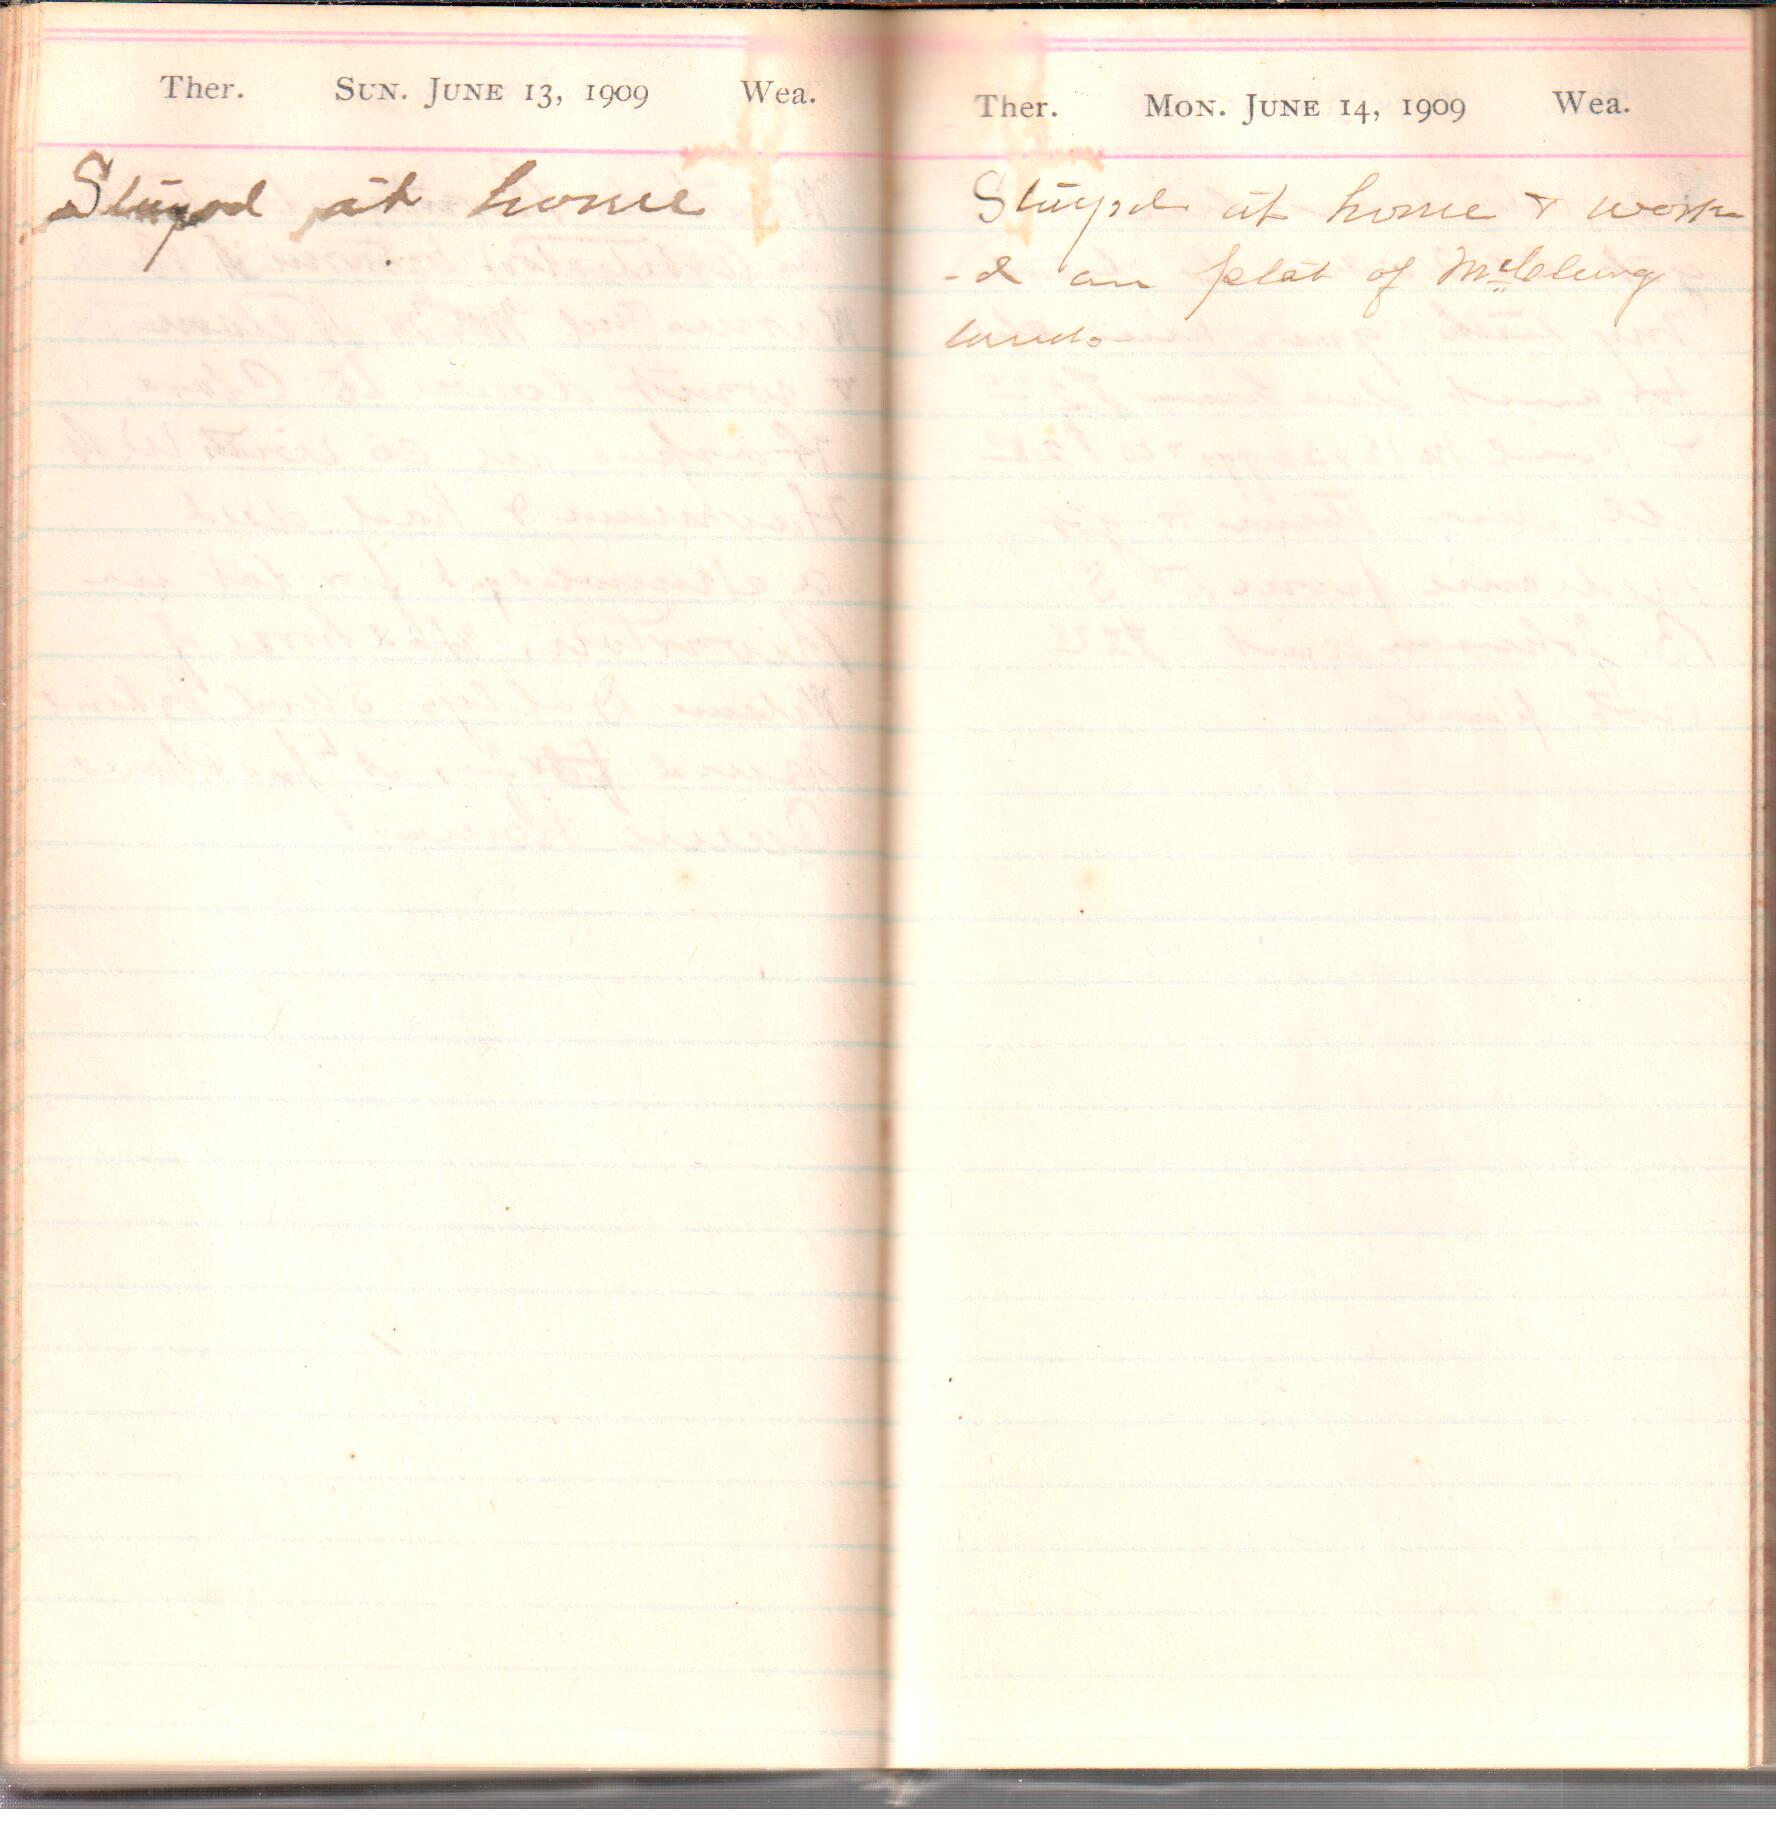 Ther. Sun. June 13, 1909 Wea.
Stayed at home
Ther. Mon. June 14, 1909 Wea.
Stayed at home & work
-d on plat of McClung
land.